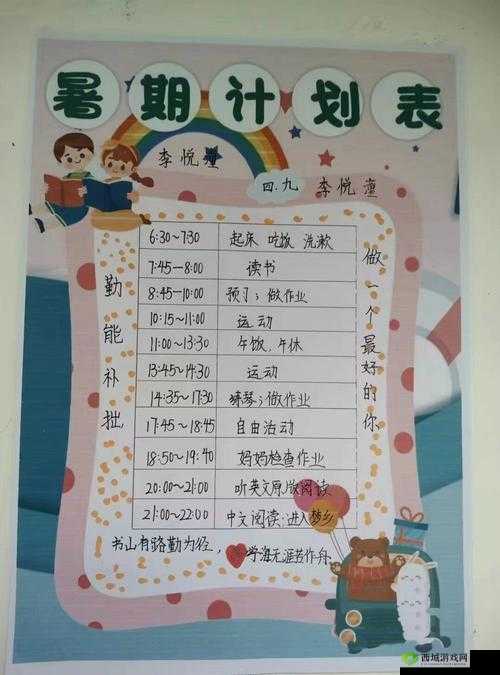 暑期计划表
李悦潼
四.九 李悦潼
勤能补拙
做一个最好的你
6:30~7:30 起床 吃饭 洗漱
7:45—8:00 读书
8:45—10:00 预习;做作业
10:15~11:00 运动
11:00~13:30 午饭,午休
13:45~14:30 运动
14:35~17:30 练琴;做作业
17:45~18:45 自由活动
18:50~19:40 妈妈检查作业
20:00~21:00 听英文原版阅读
21:00~22:00 中文阅读;进入梦乡
书山有路勤为径,学海无涯苦作舟
西城游戏网